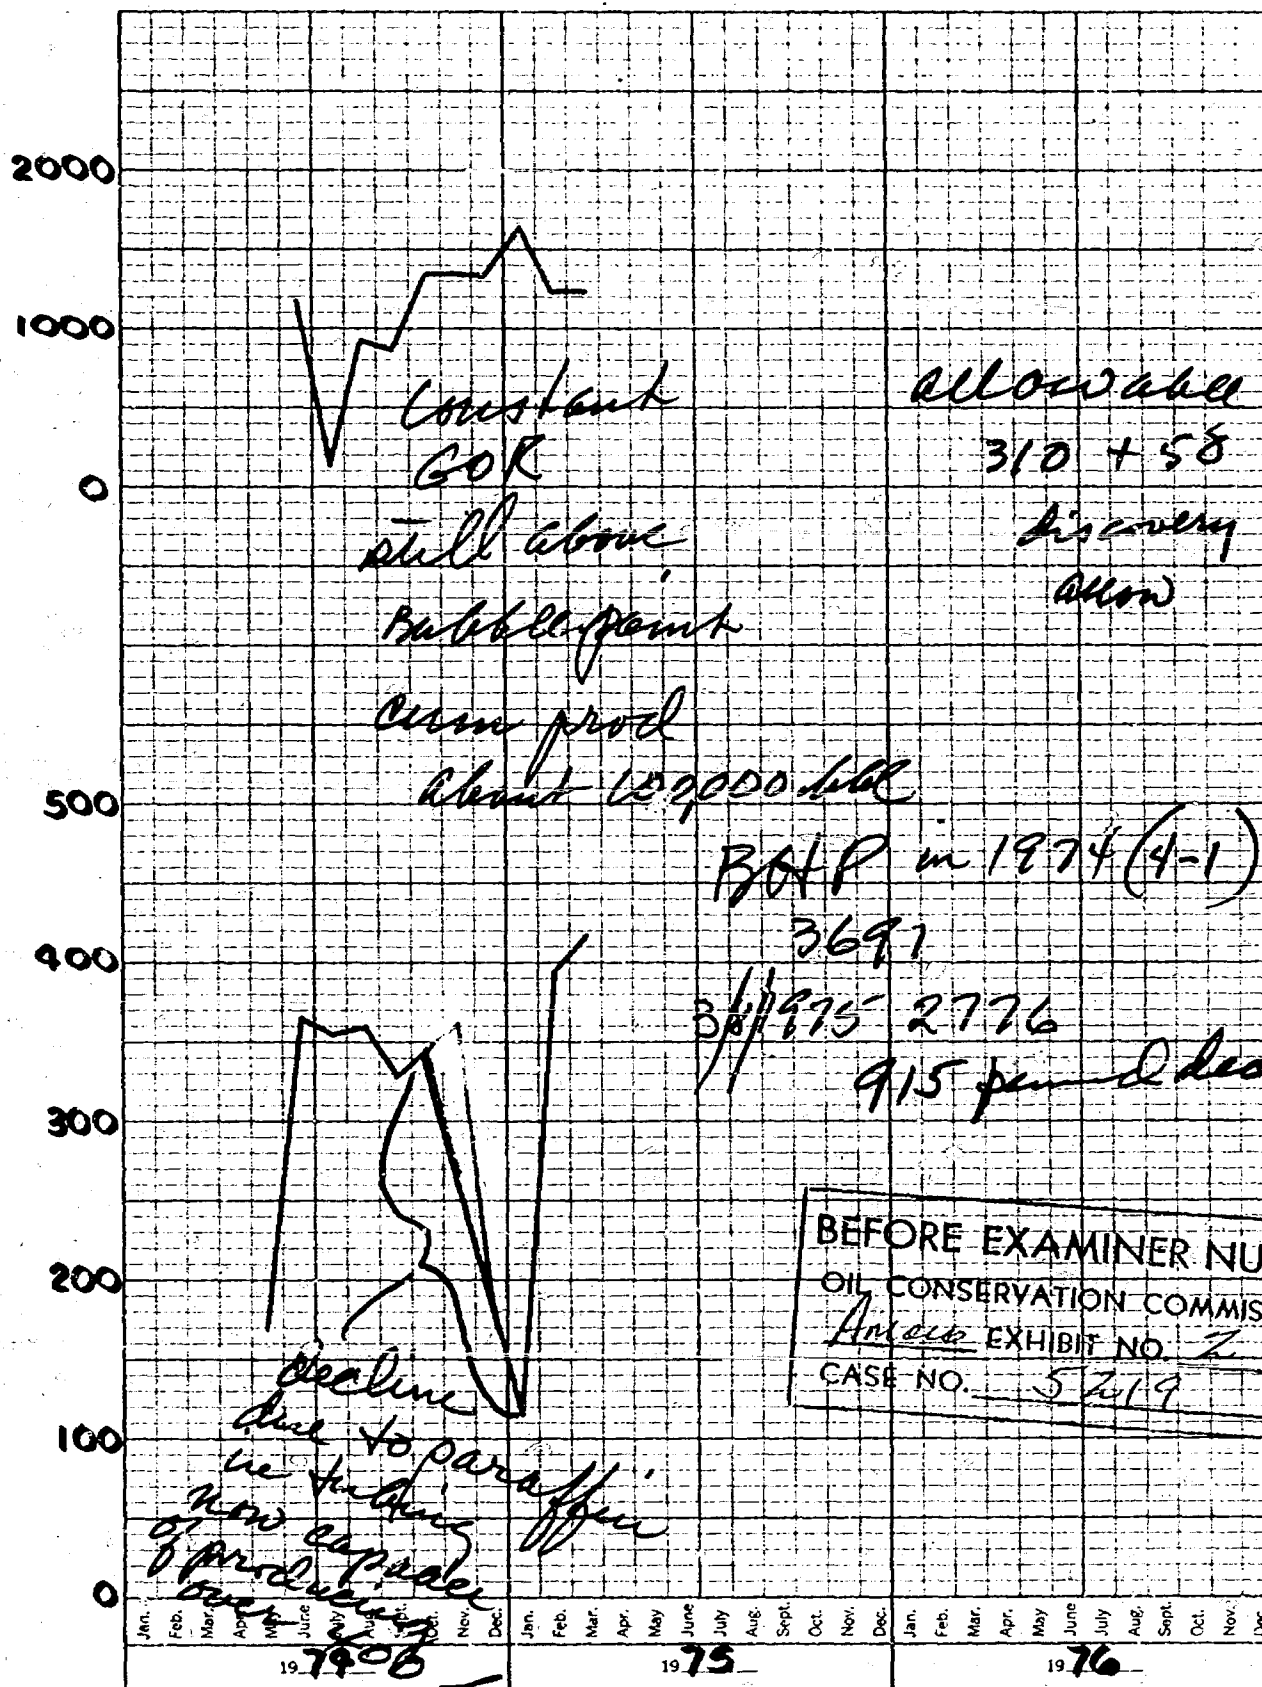 2000
1000
0
Constant
GOR
still above
Bubble point
cum prod
about 102,000 bbl
allowable
310 + 58
discovery
allow
500
400
300
200
100
0
BHP in 1974 (4-1)
3697
1975 2776
915 pound dec
BEFORE EXAMINER NU
OIL CONSERVATION COMMIS
EXHIBIT NO. 2
CASE NO. 5219
decline
due to paraffin
in tubing
now capable
of producing
over 400
Jan. Feb. Mar. Apr. May June July Aug. Sept. Oct. Nov. Dec. Jan. Feb. Mar. Apr. May June July Aug. Sept. Oct. Nov. Dec. Jan. Feb. Mar. Apr. May June July Aug. Sept. Oct. Nov. Dec
1974 1975 1976